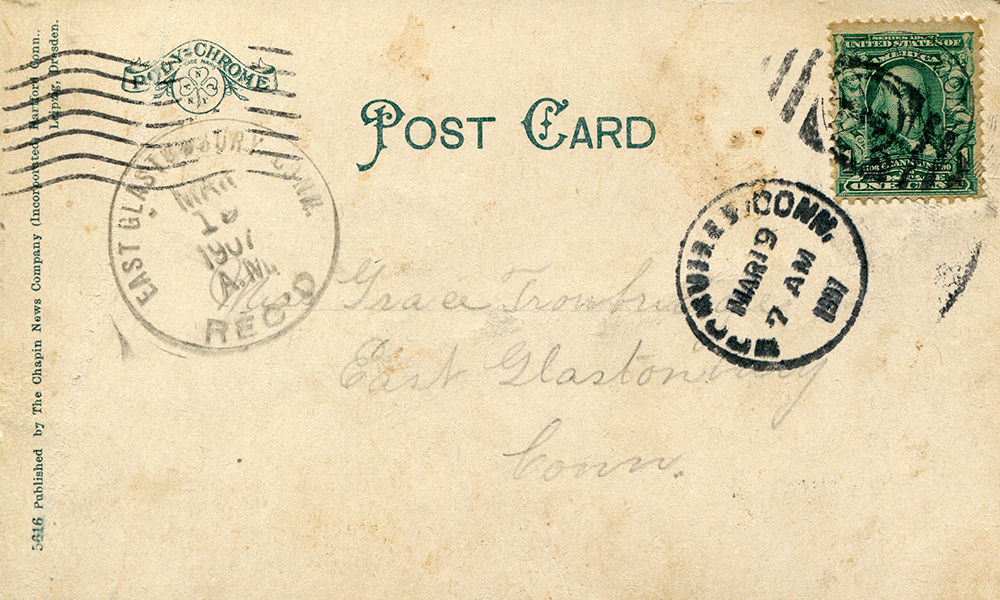 POLY-CHROME
TRADE MARK
A N C
N.Y.
POST CARD
SERIES 1902
UNITED STATES OF
AMERICA
1 1
FRANKLIN
ONE CENT
EAST GLASTONBURY CONN.
MAR
1907
A.M.
REC'D
ROCKVILLE, CONN.
MAR 19
7 AM
1907
Grace Trowbridge
East Glastonbury
Conn.
5616 Published by The Chapin News Company (Incorporated) Hartford Conn.,
Leipzig, Dresden.